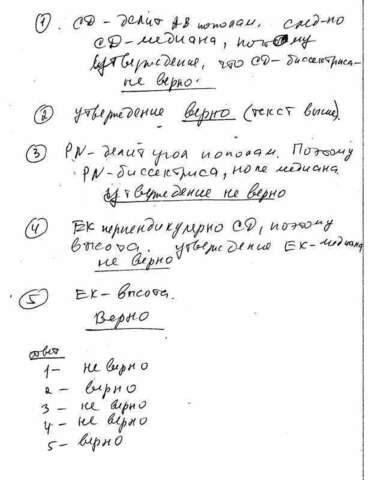 ① CD - делит AB пополам. след-но
CD - медиана, поэтому
утверждение, что CD - биссектриса -
не верно.
② утверждение верно (текст выше).
③ PN - делит угол пополам. Поэтому
PN - биссектриса, но не медиана
утверждение не верно
④ EK перпендикулярно CD, поэтому
высота. утверждение EK - медиана
не верно
⑤ EK - высота.
Верно
ответ
1 - не верно
2 - верно
3 - не верно
4 - не верно
5 - верно